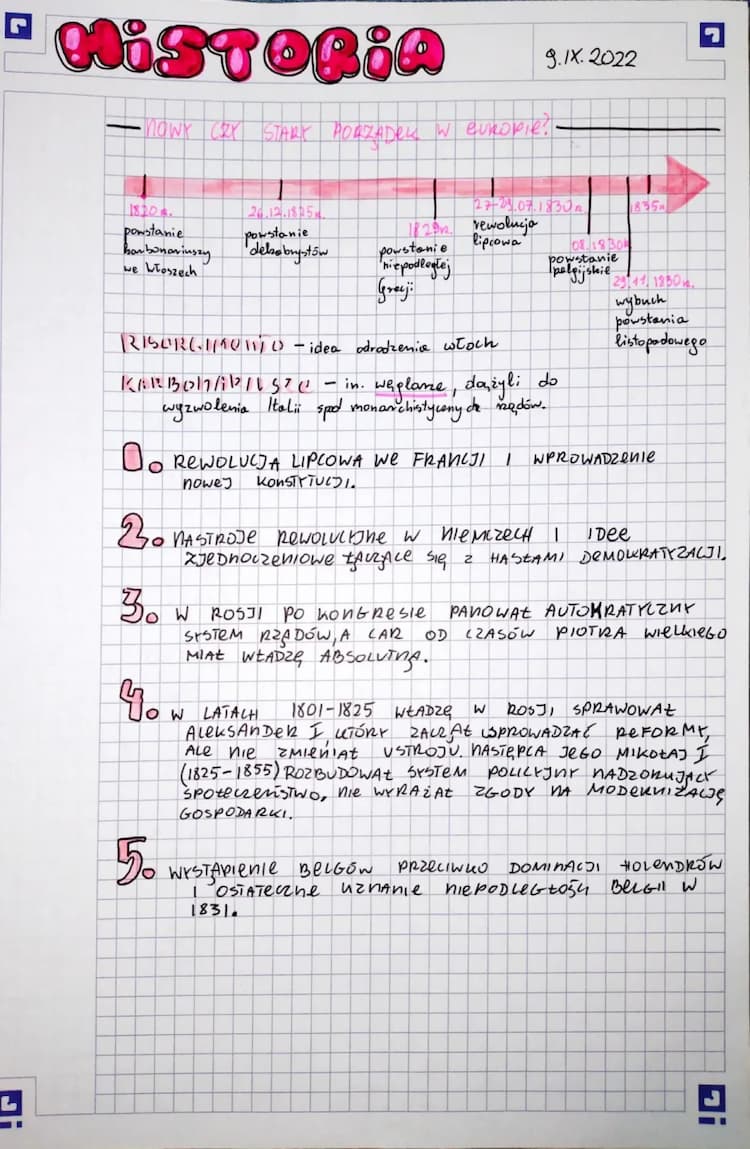 HISTORIA
9.IX.2022
NOWY CZY STARY PORZĄDEK W EUROPIE?
1820r.
powstanie
karbonariuszy
we Włoszech
26.12.1825r.
powstanie
dekabrystów
1829r.
powstanie
niepodległej
Grecji
27-29.07.1830r.
rewolucja
lipcowa
08.1830r.
powstanie
belgijskie
29.11.1830r.
wybuch
powstania
listopadowego
1835r.
RISORGIMENTO – idea odrodzenia włoch
KARBONARIUSZE – in. węglarze, dążyli do
wyzwolenia Italii spod monarchistycznych rządów.
1. REWOLUCJA LIPCOWA WE FRANCJI I WPROWADZENIE
NOWEJ KONSTYTUCJI.
2. NASTROJE REWOLUCYJNE W NIEMCZECH I IDEE
ZJEDNOCZENIOWE ŁĄCZĄCE SIĘ Z HASŁAMI DEMOKRATYZACJI.
3. W ROSJI PO KONGRESIE PANOWAŁ AUTOKRATYCZNY
SYSTEM RZĄDÓW, A CAR OD CZASÓW PIOTRA WIELKIEGO
MIAŁ WŁADZĘ ABSOLUTNĄ.
4. W LATACH 1801-1825 WŁADZĘ W ROSJI SPRAWOWAŁ
ALEKSANDER I, KTÓRY ZACZĄŁ WPROWADZAĆ REFORMY,
ALE NIE ZMIENIAŁ USTROJU. NASTĘPCA JEGO MIKOŁAJ I
(1825-1855) ROZBUDOWAŁ SYSTEM POLICYJNY NADZORUJĄCY
SPOŁECZEŃSTWO, NIE WYRAŻAŁ ZGODY NA MODERNIZACJĘ
GOSPODARKI.
5. WYSTĄPIENIE BELGÓW PRZECIWKO DOMINACJI HOLENDRÓW
I OSTATECZNE UZNANIE NIEPODLEGŁOŚCI BELGII W
1831.